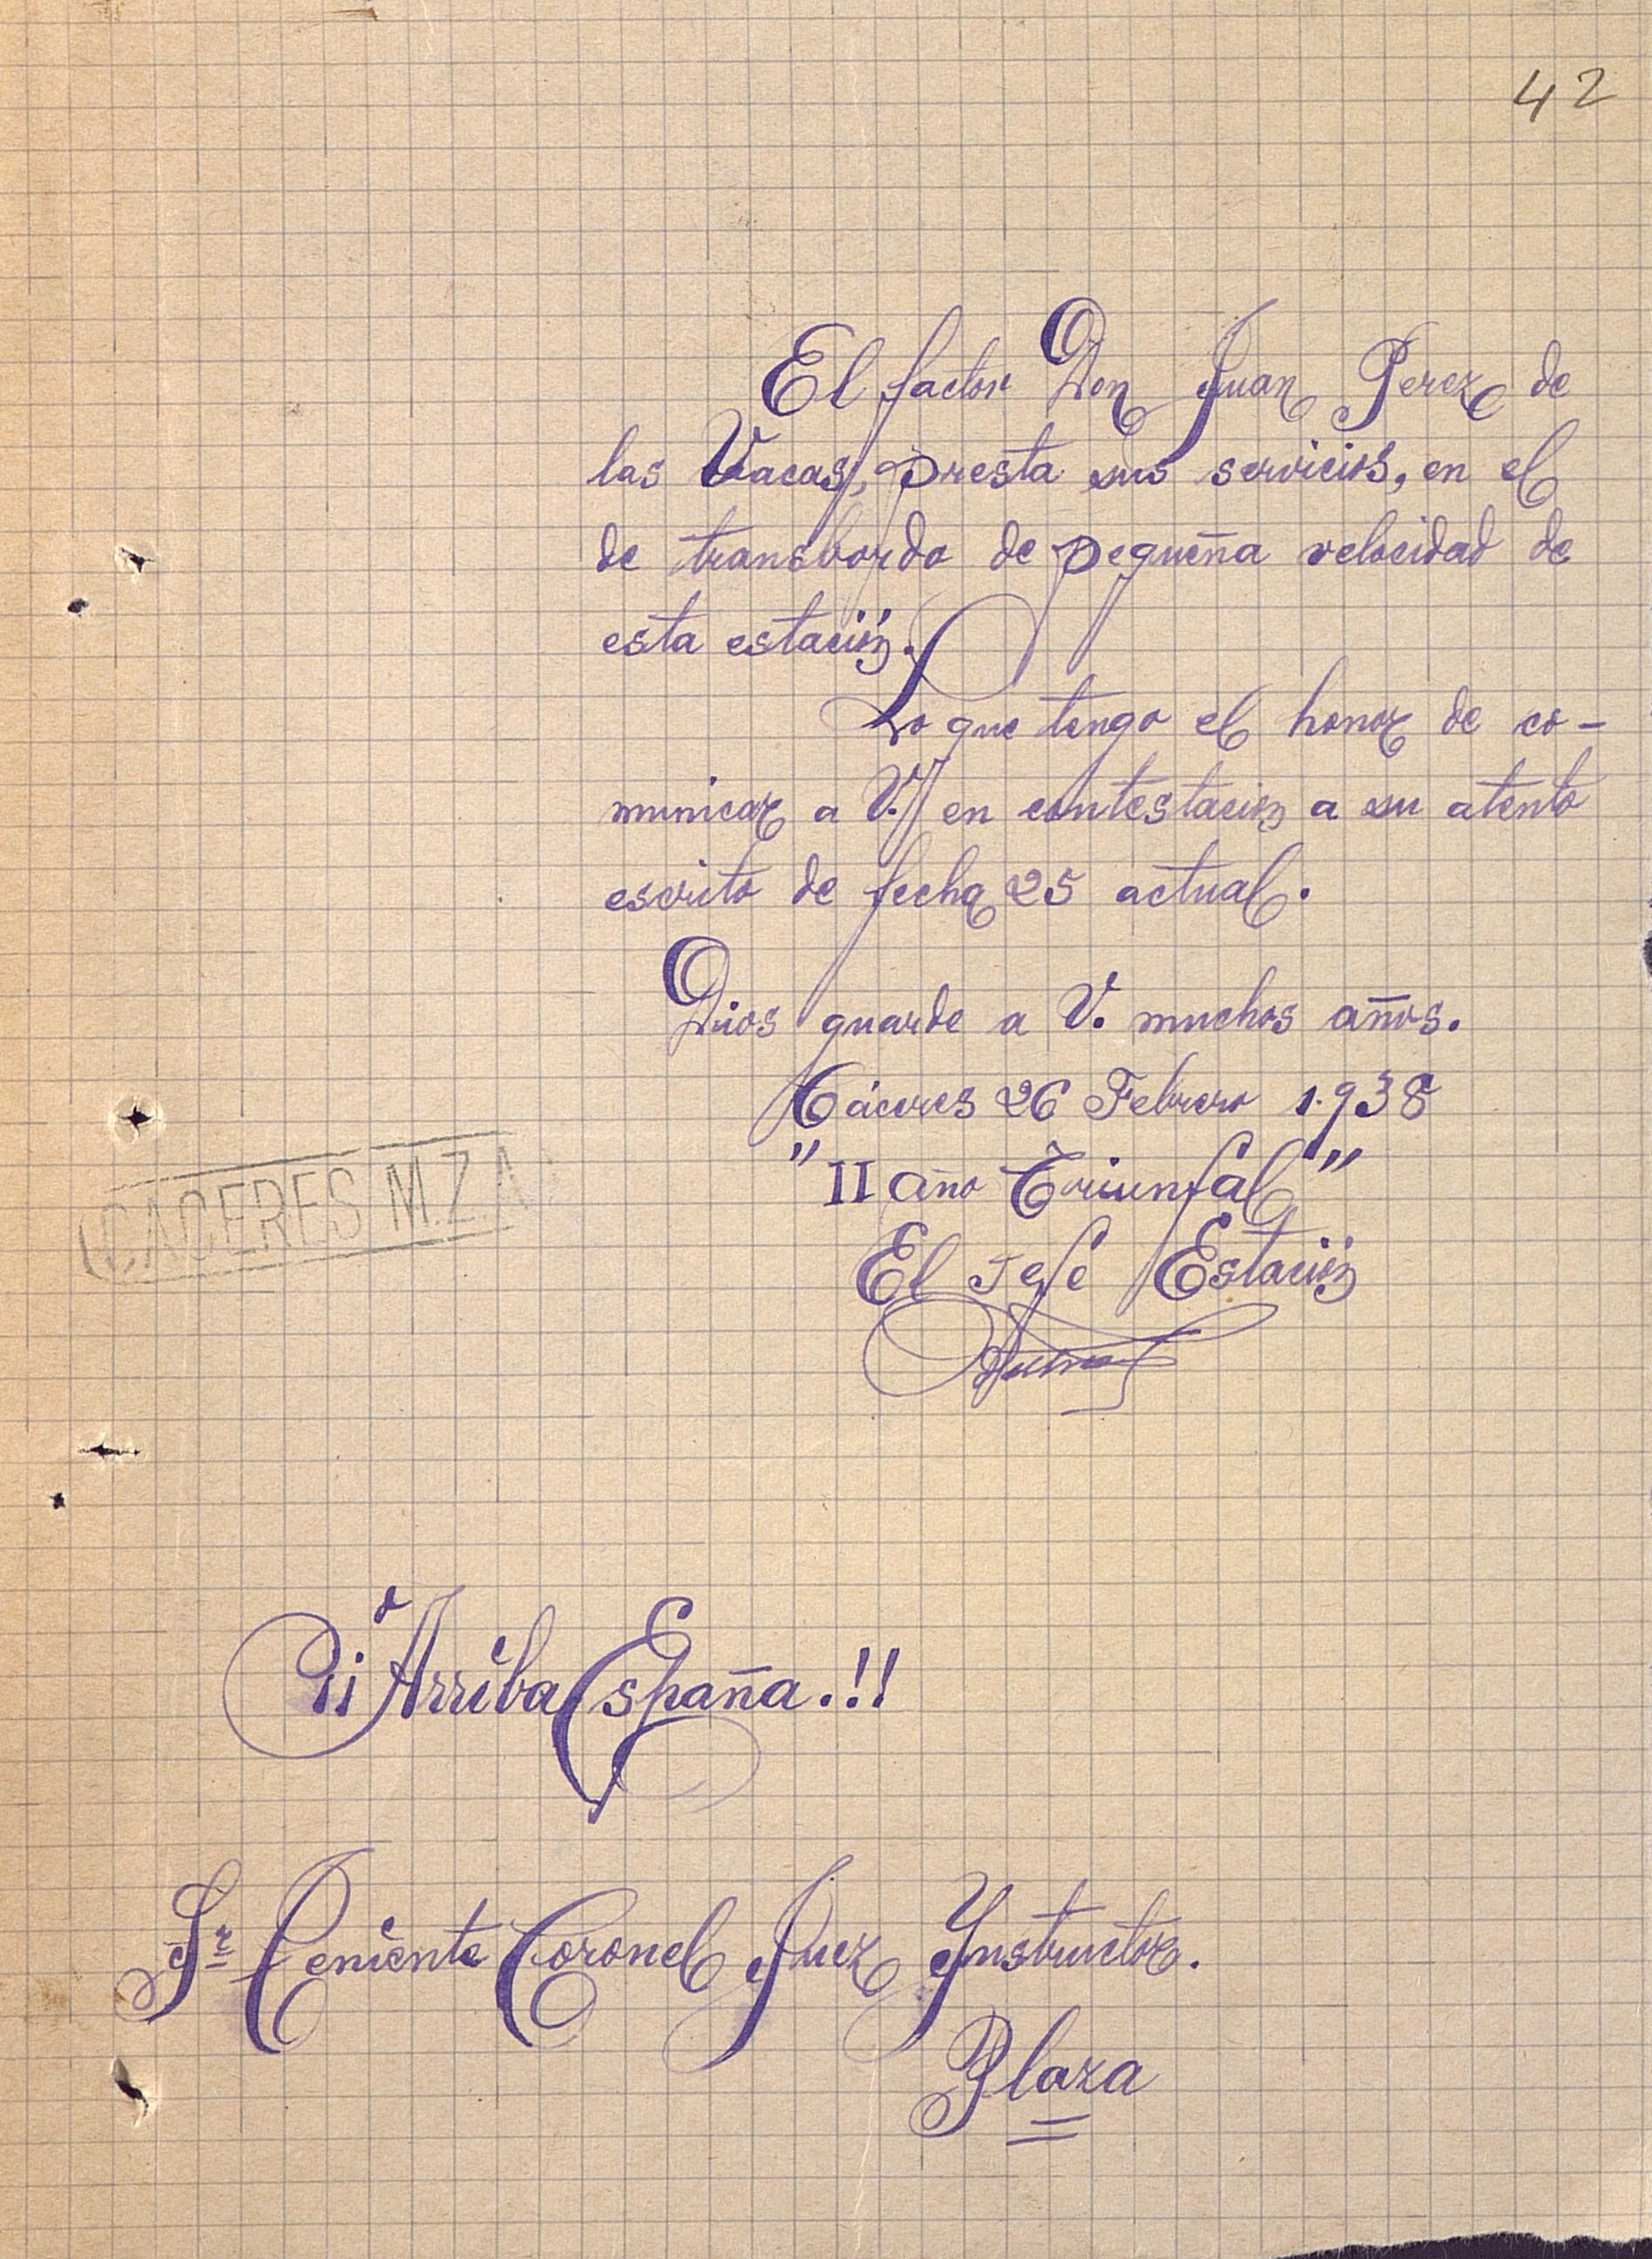 42
El factor Don Juan Perez de
las Vacas, presta sus servicios, en el
de transbordo de pequeña velocidad de
esta estación.
Lo que tengo el honor de co-
municar a V. en contestacion a su atento
escrito de fecha 25 actual.
Dios guarde a V. muchos años.
Cáceres 26 Febrero 1.938
"II año Triunfal"
El Jefe Estación
CACERES M.Z.A.
¡¡Arriba España.!!
Sr Teniente Coronel Juez Ynstructor.
Plaza